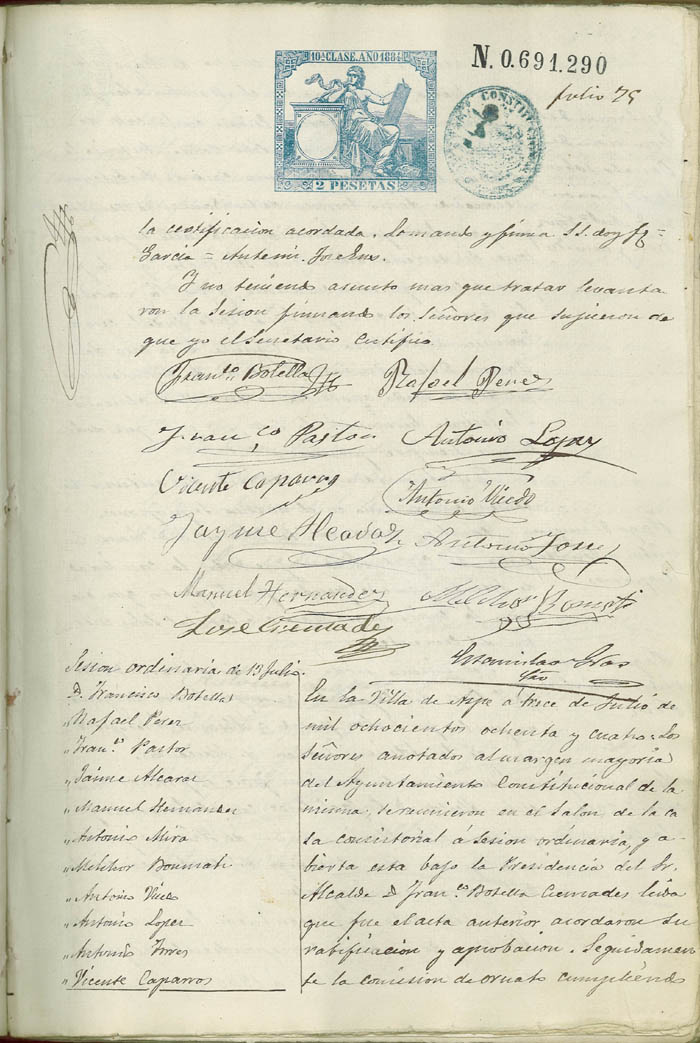 10ª CLASE. AÑO 1884
2 PESETAS
N. 0.691.290
CONSTITUCIONAL
folio 75
la certificacion acordada. Lo mandó y firma S.S. doy fé=
Garcia = Antemi. Jose
Y no teniendo asunto mas que tratar levanta
ron la Sesion firmando los Señores que supieron de
que yo el Secretario certifico
Fran.co Botella
Rafael Perez
Fran.co Pastor
Antonio Lopez
Vicente Caparros
Antonio Vicedo
Jayme Alcaraz
Antonio Torres
Manuel Hernandez
Melchor Bonmati
Jose Cremades
Estanislao Gras
Srio
Sesion ordinaria de 13 Julio.
D. Francisco Botella
" Rafael Perez
" Fran.co Pastor
" Jaime Alcaraz
" Manuel Hernandez
" Antonio Mira
" Melchor Bonmati
" Antonio Vicedo
" Antonio Lopez
" Antonio Torres
" Vicente Caparros
En la Villa de Aspe á trece de Julio de
mil ochocientos ochenta y cuatro: Los
Señores anotados al margen mayoria
del Ayuntamiento Constitucional de la
misma, se reunieron en el Salon de la ca
sa consistorial á sesion ordinaria, y a
bierta esta bajo la Presidencia del Sr.
Alcalde D. Fran.co Botella Cremades leida
que fue el acta anterior acordaron su
ratificacion y aprobacion. Seguidamen
te la comision de ornato cumpliendo